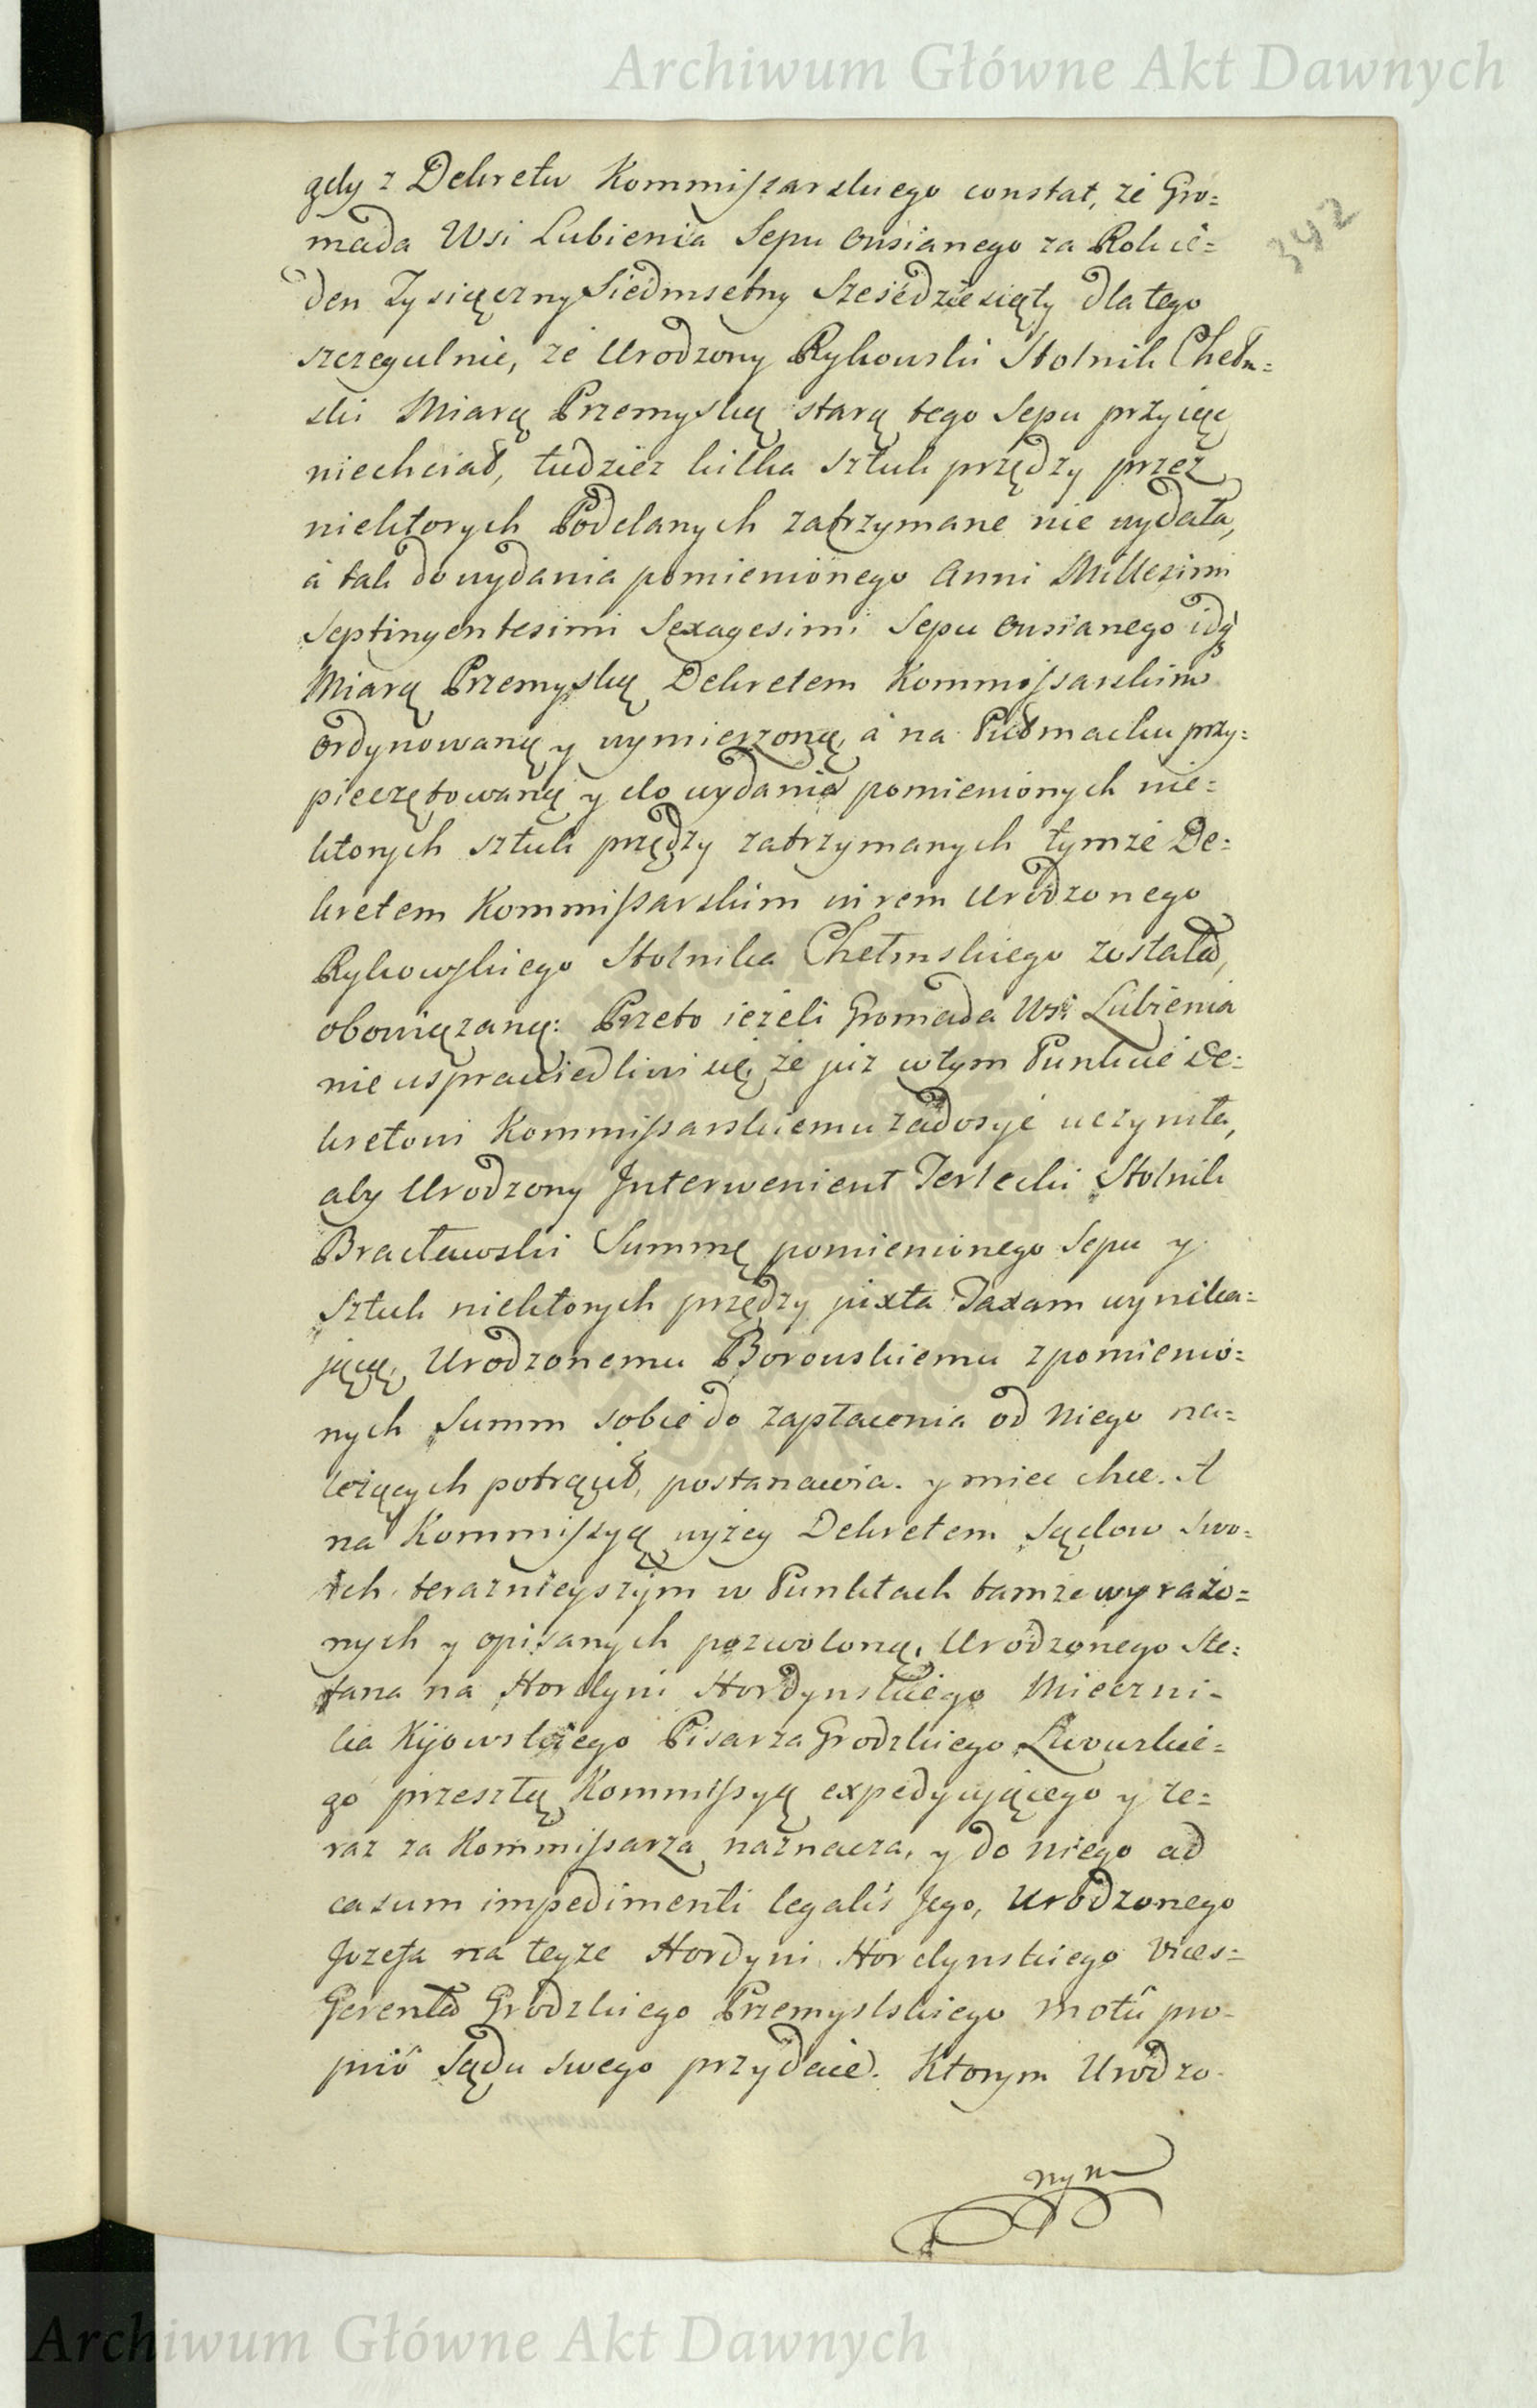 Archiwum Główne Akt Dawnych
342
gdy z Dekretu Kommissarskiego constat, że Gro=
mada Wsi Lubienia Sepu owsianego za Rok ie=
den Tysiączny Siedmsetny Sześcdziesiąty dla tego
szczegulnie, że Urodzony Rykowski Stolnik Chełm=
ski Miarą Przemyską starą tego Sepu przyiąc
niechciał, tudziez kilka sztuk przędzy przez
niektorych Poddanych zatrzymane nie wydała,
á tak do wydania pomienionego Anni Millesimi
Septingentesimi Sexagesimi Sepu owsianego idą
Miarą Przemyską Dekretem Kommissarskim
ordynowaną y wymierzoną, á na Pułmacku przy=
pieczętowaną y do wydania pomienionych nie=
ktorych sztuk przędzy zatrzymanych tymże De=
kretem Kommissarskim wrem Urodzonego
Rykowskiego Stolnika Chełmskiego została,
obowiązaną: Przeto ieżeli Gromada Wsi Lubienia
nie usprawiedliwi się, że już w tym Punkcie De=
kretowi Kommissarskiemu zadosyć uczyniła,
aby Urodzony Interwenient Terlecki Stolnik
Bracławski Summę pomienionego Sepu y
sztuk niektorych przędzy juxta Taxam wynika=
jącą, Urodzonemu Borowskiemu z pomienio=
nych Summ sobie do zapłacenia od niego na=
leżących potrącił, postanawia. y miec chce. A
na Kommissyą wyżey Dekretem Sądow swo=
ich teraznieyszym w Punktach tamże wyrażo=
nych y opisanych pozwoloną, Urodzonego Ste=
fana na Hordyni Hordynskiego Mieczni=
ka Kijowskiego Pisarza Grodzkiego Lwowskie=
go przeszłą Kommissyą expedyującego y te=
raz za Kommissarza naznacza, y do niego ad
casum impedimenti legalis Jego, Urodzonego
Jozefa na teyze Hordyni Hordynskiego Vices=
Gerenta Grodzkiego Przemyslskiego motû pro=
priô Sądu swego przydaie. Ktorym Urodzo-
nym
Archiwum Główne Akt Dawnych